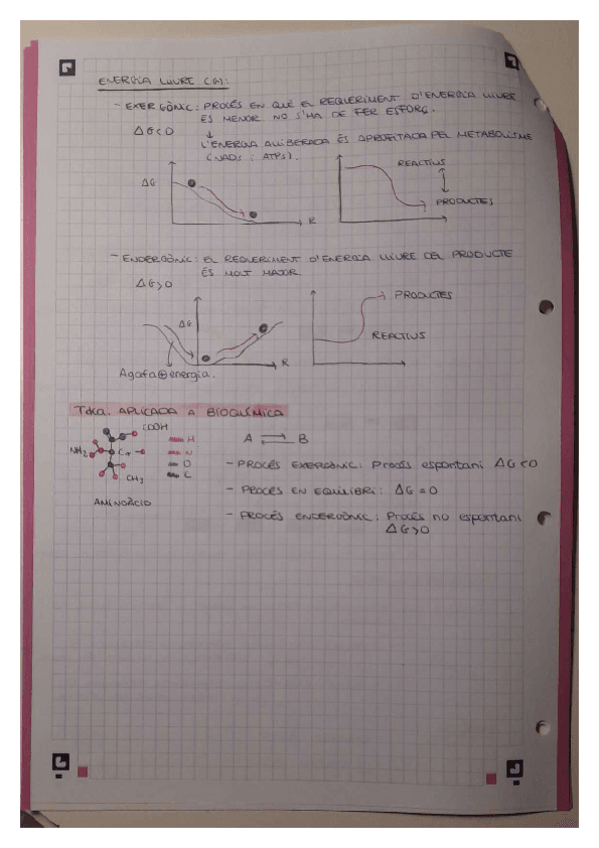 ENERGIA LLIURE (G):
- EXERGÒNIC: PROCÉS EN QUÈ EL REQUERIMENT D'ENERGIA LLIURE
ÉS MENOR. NO S'HA DE FER ESFORÇ.
ΔG<O
↓
L'ENERGIA ALLIBERADA ÉS APROFITADA PEL METABOLISME
(NADS i ATPs).
ΔG
R
REACTIUS
PRODUCTES
- ENDERGÒNIC: EL REQUERIMENT D'ENERGIA LLIURE DEL PRODUCTE
ÉS MOLT MAJOR
ΔG>O
ΔG
R
Agafa ⊕ energia.
PRODUCTES
REACTIUS
Tdca. APLICADA A BIOQUÍMICA
COOH
NH2
CH3
AMINOÀCID
H
N
O
C
A ⇌ B
- PROCÉS EXERGÒNIC: Procés espontani ΔG<O
- PROCÉS EN EQUILIBRI: ΔG=O
- PROCÉS ENDERGÒNIC: Procés no espontani
ΔG>O